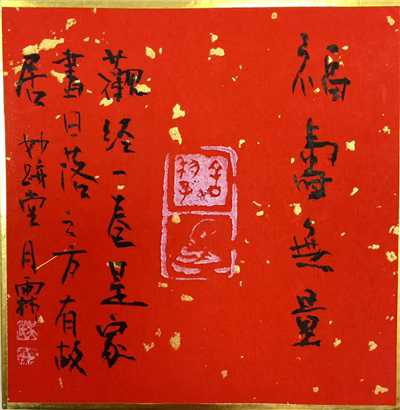 福壽無量
觀经一卷是家
書日落之方有故
居 妙 堂月霖